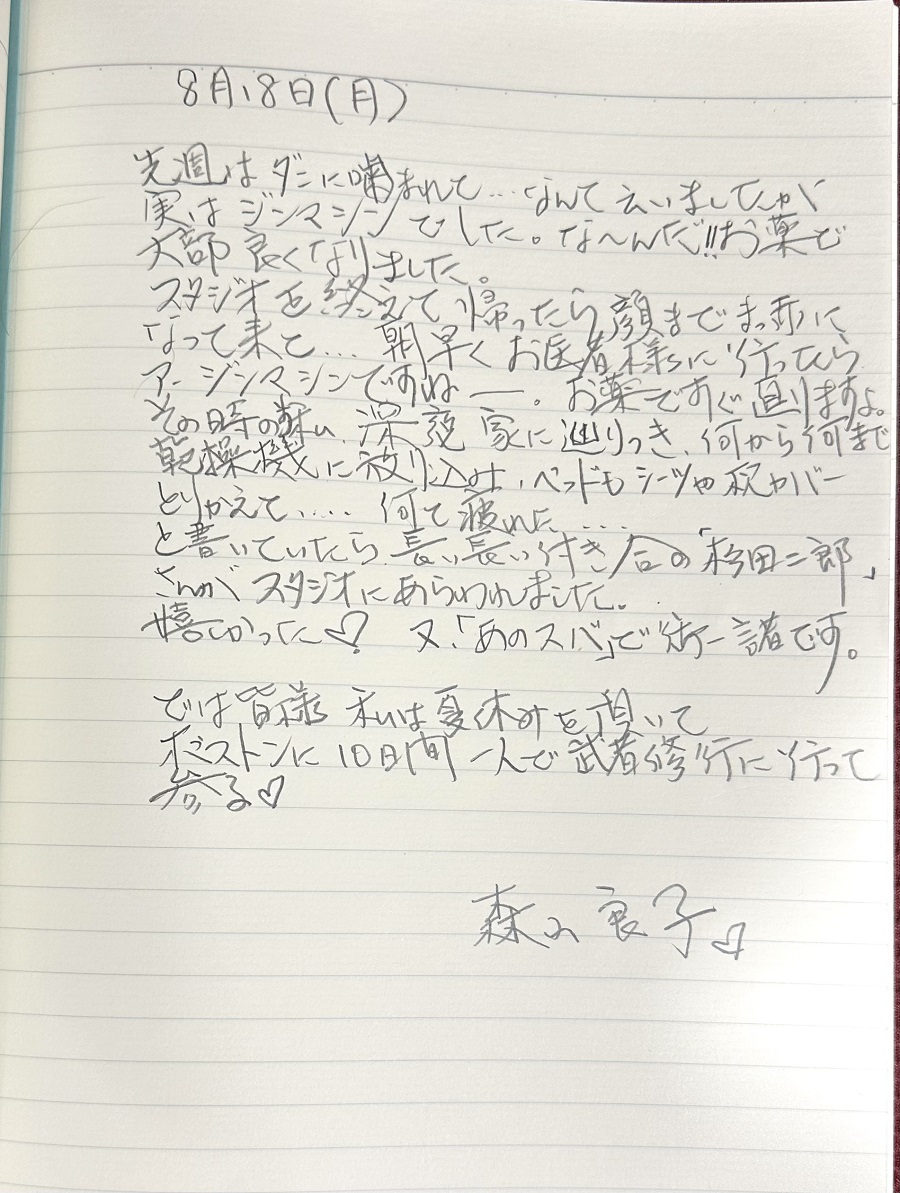 8月18日(月)
先週はダニに噛まれて…なんて云いましたが
実はジンマシンでした。な〜んだ!!お薬で
大部良くなりました。
スタジオを終えて帰ったら顔までまっ赤に
なって来て…朝早くお医者様に行ったら
アージンマシンですねー。お薬ですぐ直りますよ。
その時の私、深夜家に辿りつき、何から何まで
乾燥機に放り込み、ベッドもシーツや枕カバー
とりかえて、…. 何て疲れた…
と書いていたら長い長い付き合の「杉田二郎」
さんがスタジオにあらわれました。
嬉しかった♡ 又「あのスバ」で御一諸です。
では皆様 私は夏休みを頂いて
ボストンに10日間一人で武者修行に行って
参る♡
森山良子♡